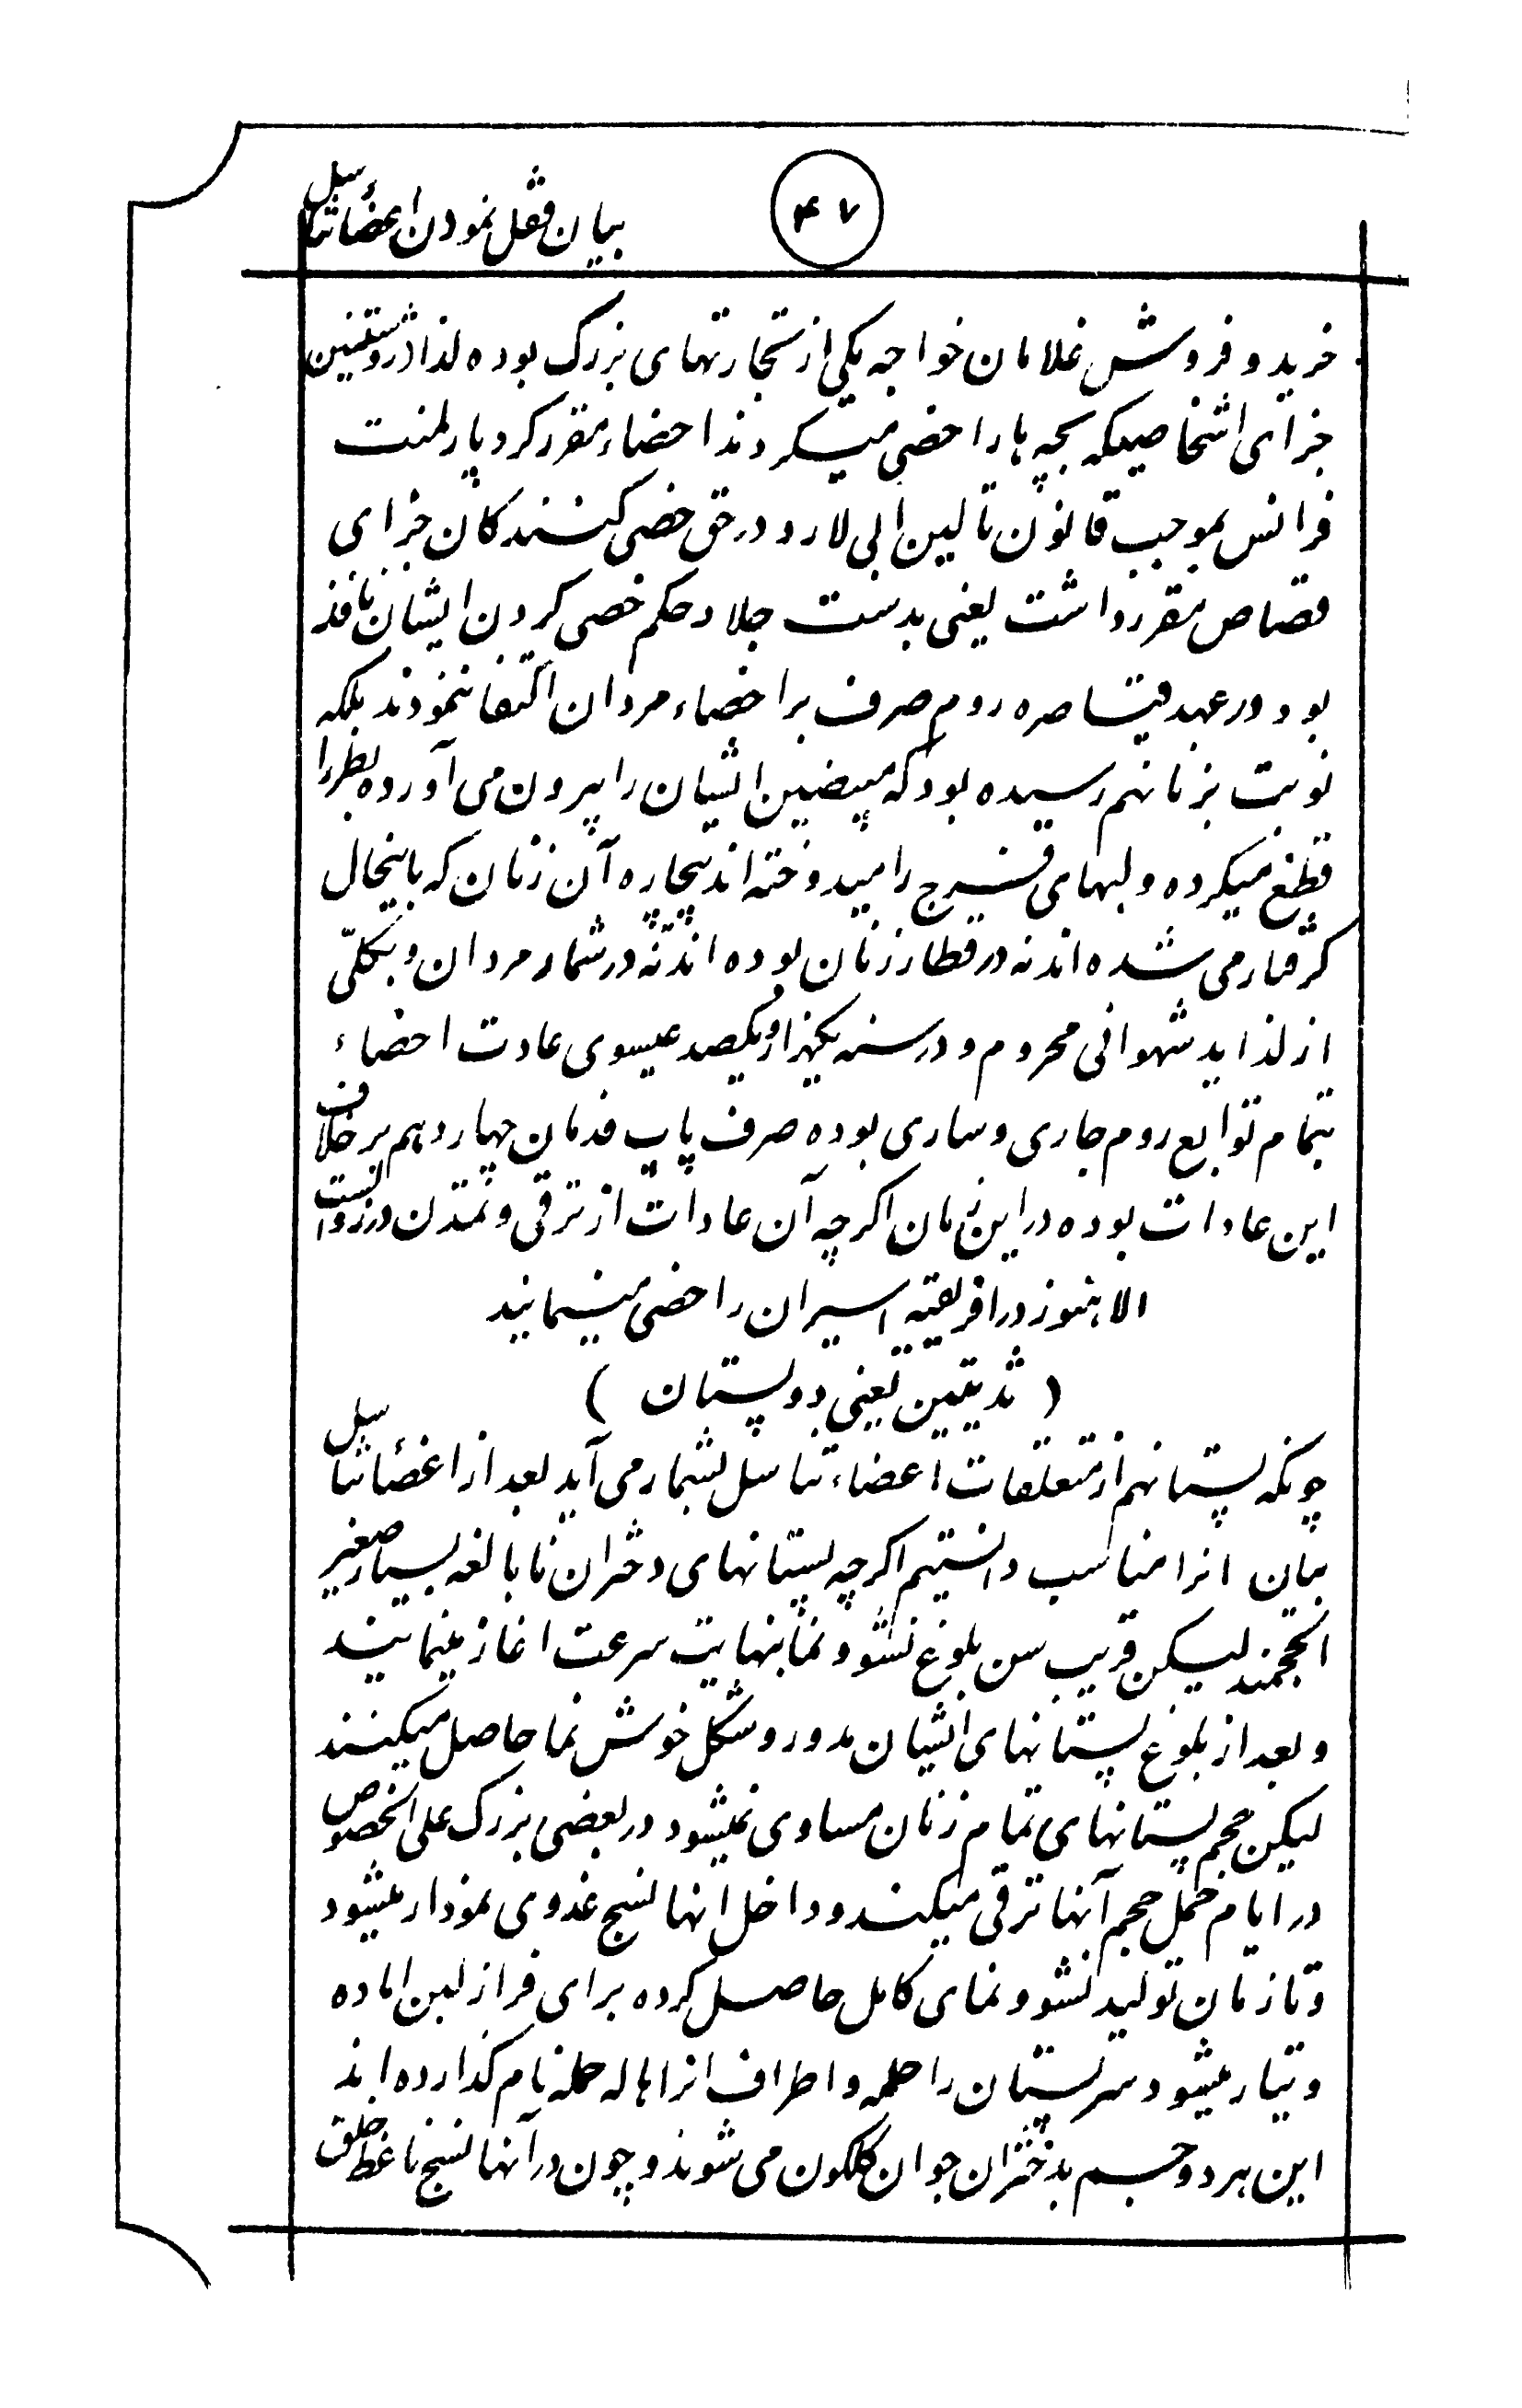 ۴۷
بیان قفل نمودن اعضائ تناسل
خرید و فروش غلامان خواجه یکی از تجارتهای بزرگ بوده لذا
جزای اشخاصیکه بچه ها را خصی میکردند اخصاء مقرر کرد پارلمنت
فرانس بموجب قانون تالین ابی لارد در حق خصی کنندگان جزای
قصاص مقرر داشت یعنی بدست جلاد حکم خصی کردن ایشان نافذ
بود در عهد قیاصره روم صرف بر اخصاء مردان اکتفا ننمودند بلکه
نوبت بزنانهم رسیده بود که مبیضین ایشان را بیرون می آورده بظر را
قطع میکرده و لبهای فرج را میدوخته اند بیچاره آن زنان که باینحال
گرفتار می شده اند نه در قطار زنان بوده اند نه در شمار مردان و بکلّی
از لذاید شهوانی محروم و در سنه یکهزار و یکصد عیسوی عادت اخصاء
بتمام توابع روم جاری و ساری بوده صرف پاپ چهاردهم بر خلاف
این عادات بوده در این زمان اگرچه آن عادات از ترقی و تمدن در زوال است
الا هنوز در افریقیه اسیران را خصی مینمایند
( ثدیین یعنی دو پستان )
چونکه پستانهم از متعلقات اعضاء تناسل بشمار می آید بعد از اعضائ تناسل
بیان انرا مناسب دانستیم اگرچه پستانهای دختران نابالغه بسیار صغیر
الحجمند لیکن قریب سن بلوغ نشو و نما بنهایت سرعت اغاز مینمایند
و بعد از بلوغ پستانهای ایشان مدور و شکل خوش نما حاصل میکنند
لیکن حجم پستانهای تمام زنان مساوی نمیشود در بعضی بزرگ علی الخصوص
در ایام حمل حجم آنها ترقی میکند و داخل انها نسج غدوی نمودار میشود
و تا زمان تولید نشو و نمای کامل حاصل کرده برای فراز لبن اماده
و تیار میشود سر پستان را حلمه و اطراف انرا هاله حلمه نام گذارده اند
این هر دو جسم بدختران جوان گلگون می شوند و چون در آنها نسج